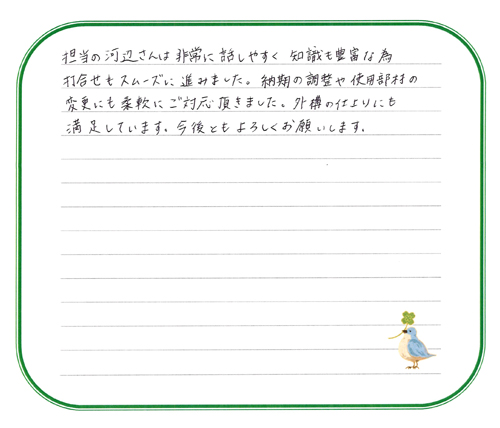 担当の河辺さんは非常に話しやすく 知識も豊富な為
打合せもスムーズに進みました。納期の調整や使用部材の
変更にも柔軟にご対応頂きました。外構の仕上りにも
満足しています。今後ともよろしくお願いします。